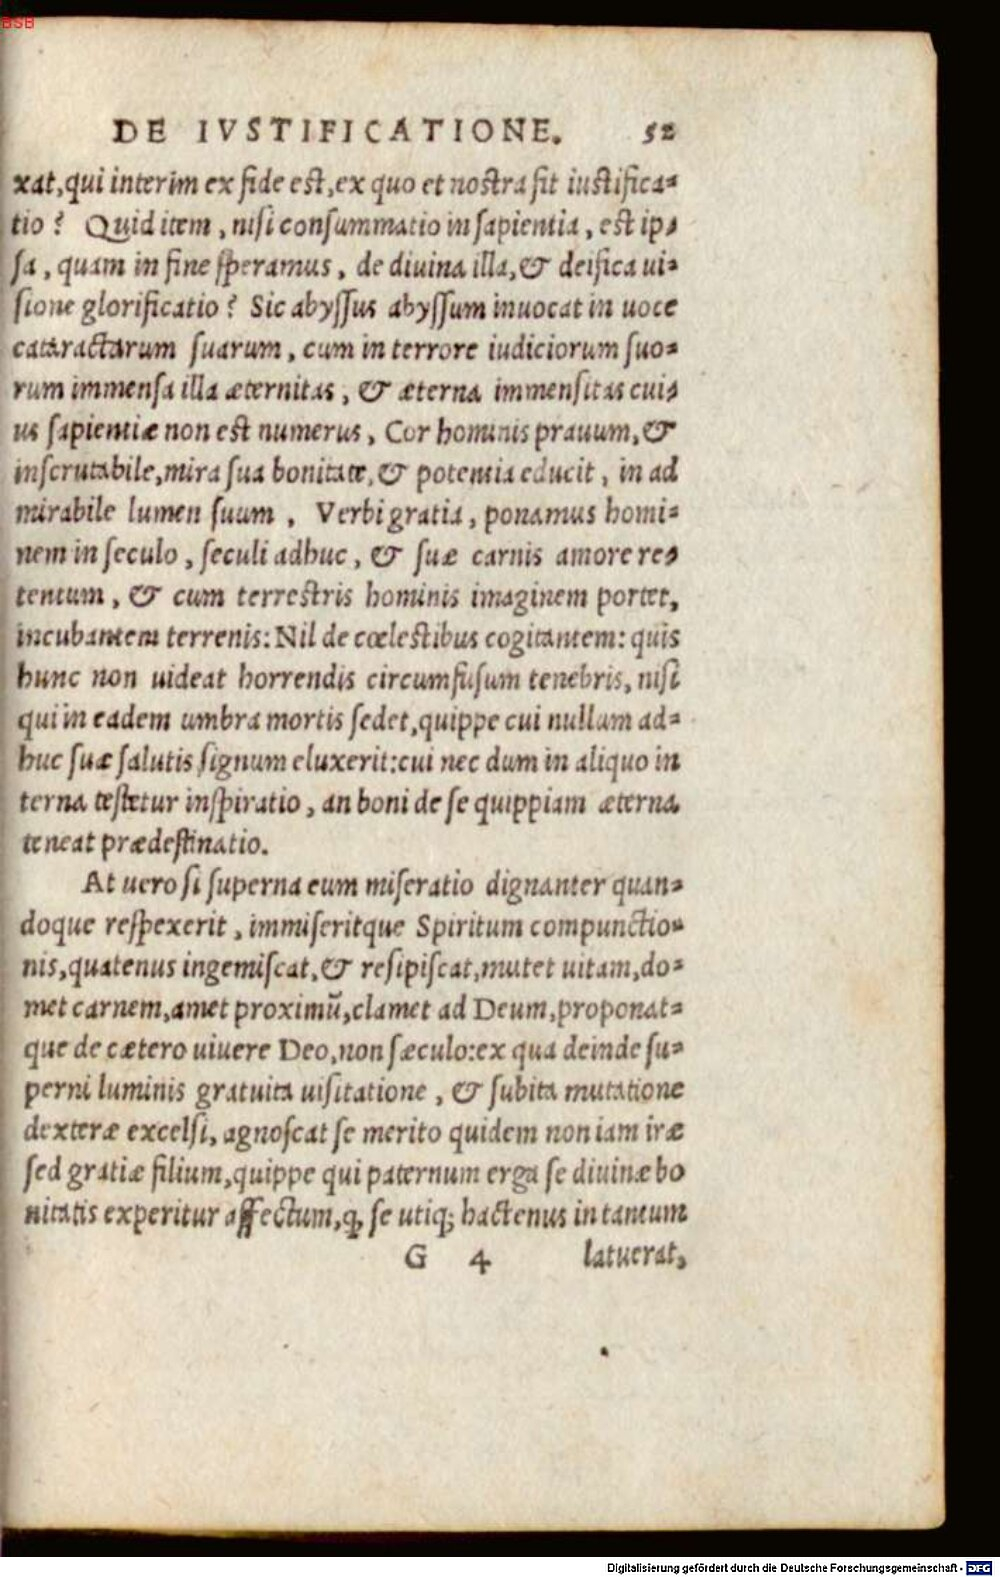 BSB
DE IVSTIFICATIONE. 52
xat, qui interim ex fide est, ex quo et nostra fit iustifica-
tio? Quid item, nisi consummatio in sapientia, est ip-
sa, quam in fine speramus, de diuina illa, & deifica ui-
sione glorificatio? Sic abyssus abyssum inuocat in uoce
cataractarum suarum, cum in terrore iudiciorum suo-
rum immensa illa æternitas, & æterna immensitas cui-
us sapientiæ non est numerus, Cor hominis prauum, &
inscrutabile, mira sua bonitate, & potentia educit, in ad
mirabile lumen suum, Verbi gratia, ponamus homi-
nem in seculo, seculi adhuc, & suæ carnis amore re-
tentum, & cum terrestris hominis imaginem portet,
incubantem terrenis: Nil de cœlestibus cogitantem: quis
hunc non uideat horrendis circumfusum tenebris, nisi
qui in eadem umbra mortis sedet, quippe cui nullum ad-
huc suæ salutis signum eluxerit: cui nec dum in aliquo in
terna testetur inspiratio, an boni de se quippiam æterna
teneat prædestinatio.
At uero si superna eum miseratio dignanter quan-
doque respexerit, immiseritque Spiritum compunctio-
nis, quatenus ingemiscat, & resipiscat, mutet uitam, do-
met carnem, amet proximũ, clamet ad Deum, proponat-
que de cætero uiuere Deo, non sæculo: ex qua deinde su-
perni luminis gratuita uisitatione, & subita mutatione
dexteræ excelsi, agnoscat se merito quidem non iam iræ
sed gratiæ filium, quippe qui paternum erga se diuinæ bo
nitatis experitur affectum, ꝙ se utiqꝫ hactenus in tantum
G 4 latuerat,
Digitalisierung gefördert durch die Deutsche Forschungsgemeinschaft - DFG